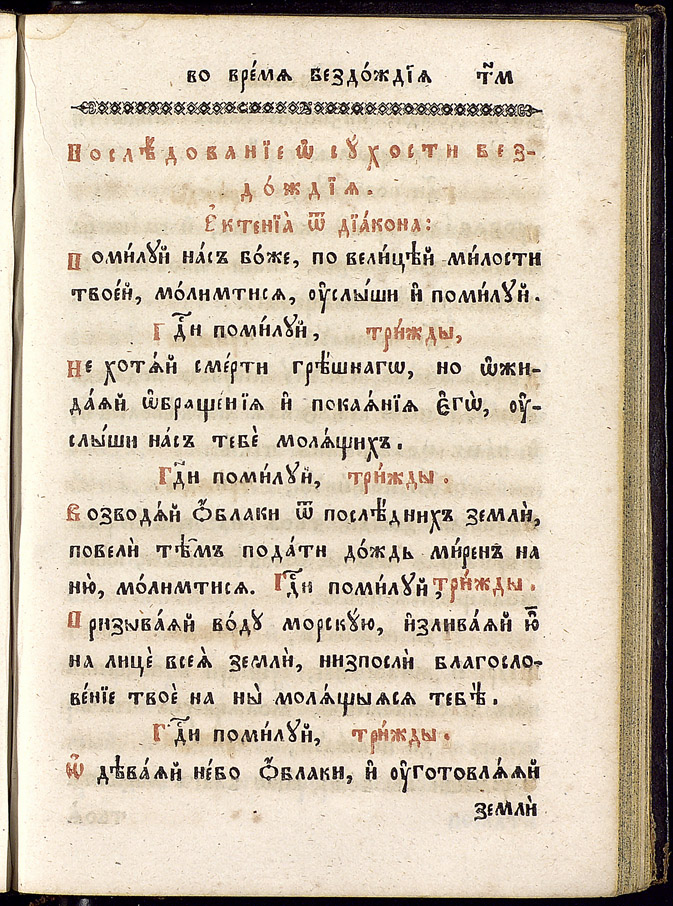 во вре́мѧ бездо́ждїѧ т҃м
Послѣ́дованїе ѡ҆ сꙋ́хости без-
до́ждїѧ.
Є҆ктенїѧ̀ ѿ дїа́кона:
Поми́лꙋй на́съ бо́же, по вели́цѣй ми́лости
твое́й, мо́лимтисѧ, ᲂу҆слы́ши и҆ поми́лꙋй.
Гдⷭ҇и поми́лꙋй, три́жды,
Не хотѧ́й сме́рти грѣ́шнагѡ, но ѡ҆жи-
да́ѧй ѡ҆браще́нїѧ и҆ покаѧ́нїѧ є҆гѡ̀, ᲂу҆-
слы́ши на́съ тебѐ молѧ́щихъ.
Гдⷭ҇и поми́лꙋй, три́жды.
Возводѧ́й ѻ҆́блаки ѿ послѣ́днихъ землѝ,
повелѝ тѣ̑мъ пода́ти до́ждь ми́ренъ на
ню̀, мо́лимтисѧ. Гдⷭ҇и поми́лꙋй, три́жды.
Призыва́ѧй во́дꙋ морскꙋ́ю, и҆злива́ѧй ю҆̀
на лицѐ всеѧ̀ землѝ, низпослѝ благосло-
ве́нїе твоѐ на ны̀ молѧ́щыѧсѧ тебѣ̀.
Гдⷭ҇и поми́лꙋй, три́жды.
Ѡ҆дѣва́ѧй не́бо ѻ҆́блаки, и҆ ᲂу҆готовлѧ́ѧй
землѝ